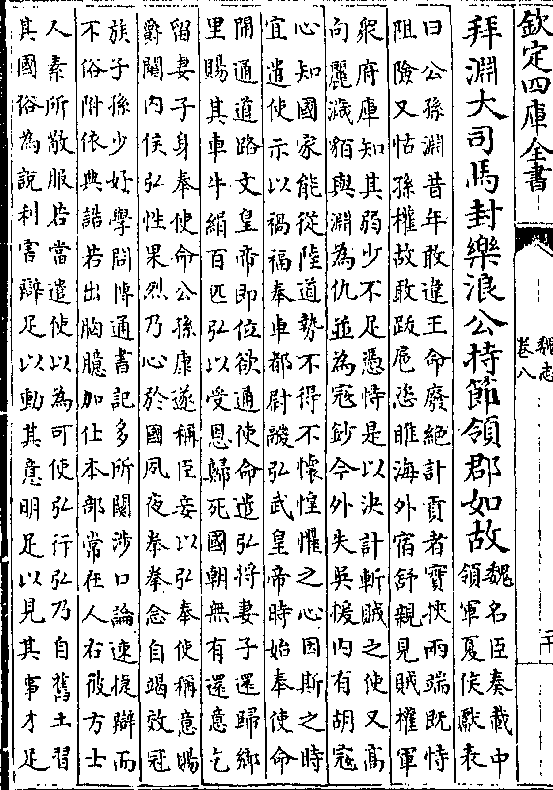 欽定四庫全書
魏志
卷八
拜淵大司馬封樂浪公持節領郡如故
魏名臣奏載中
領軍夏侯獻表
曰公孫淵昔年敢違王命廢絶計貢者實挾兩端既恃
阻險又怙孫權故敢跋扈恣睢海外宿舒親見賊權軍
衆府庫知其弱少不足憑恃是以決計斬賊之使又高
句麗濊貊與淵為仇並為寇鈔今外失吳援内有胡寇
心知國家能從陸道勢不得不懷惶懼之心因斯之時
宜遣使示以禍福奉車都尉鬷弘武皇帝時始奉使命
開通道路文皇帝即位欲通使命遣弘將妻子還歸鄉
里賜其車牛絹百匹弘以受恩歸死國朝無有還意乞
留妻子身奉使命公孫康遂稱臣妾以弘奉使稱意賜
爵關内侯弘性果烈乃心於國夙夜拳拳念自竭效冠
族子孫少好學問博通書記多所關涉口論速捷辯而
不俗附依典誥若出胸臆加仕本郡常在人右彼方士
人素所敬服若當遣使以為可使弘行弘乃自舊土習
其國俗為說利害辯足以動其意明足以見其事才足